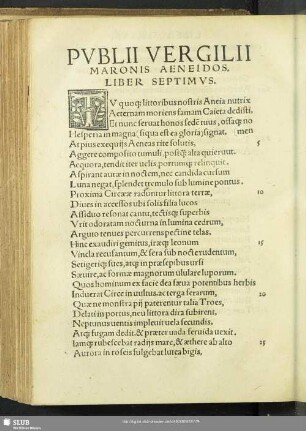 PVBLII VERGILII
MARONIS AENEIDOS,
LIBER SEPTIMVS.
TV quoq; littoribus nostris Aneia nutrix
Aeternam moriens famam Caieta dedisti.
Et nunc seruat honos sedē tuus, ossaq; no
Hesperia in magna, siqua est ea gloria, signat. men
At pius exequijs Aeneas rite solutis, 5
Aggere composito tumuli, postq̃ alta quierunt
Aequora, tendit iter uelis portumq; relinquit.
Aspirant auræ in noctem, nec candida cursum
Luna negat, splendet tremulo sub lumine pontus.
Proxima Circææ raduntur littora terræ, 10
Diues inaccessos ubi solis filia lucos
Assiduo resonat cantu, tectisq; superbis
Vrit odoratam nocturna in lumina cedrum,
Arguto tenues percurrens pectine telas.
Hinc exaudiri gemitus, iræq; leonum 15
Vincla recusantum, & sera sub nocte rudentum,
Setigeriq; sues, atq; in præsepibus ursi
Sæuire, ac formæ magnorum ululare luporum.
Quos hominum ex facie dea sæua potentibus herbis
Induerat Circe in uultus, ac terga ferarum, 20
Quæ ne monstra pij paterentur talia Troes,
Delati in portus, neu littora dira subirent,
Neptunus uentis impleuit uela secundis,
Atq; fugam dedit, & præter uada feruida uexit,
Iamq; rubescebat radijs mare, & æthere ab alto 25
Aurora in roseis fulgebat lutea bigis,
SLUB